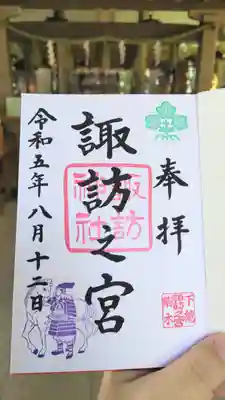 奉拝
諏訪之宮
諏訪
神社
令和五年八月十二日